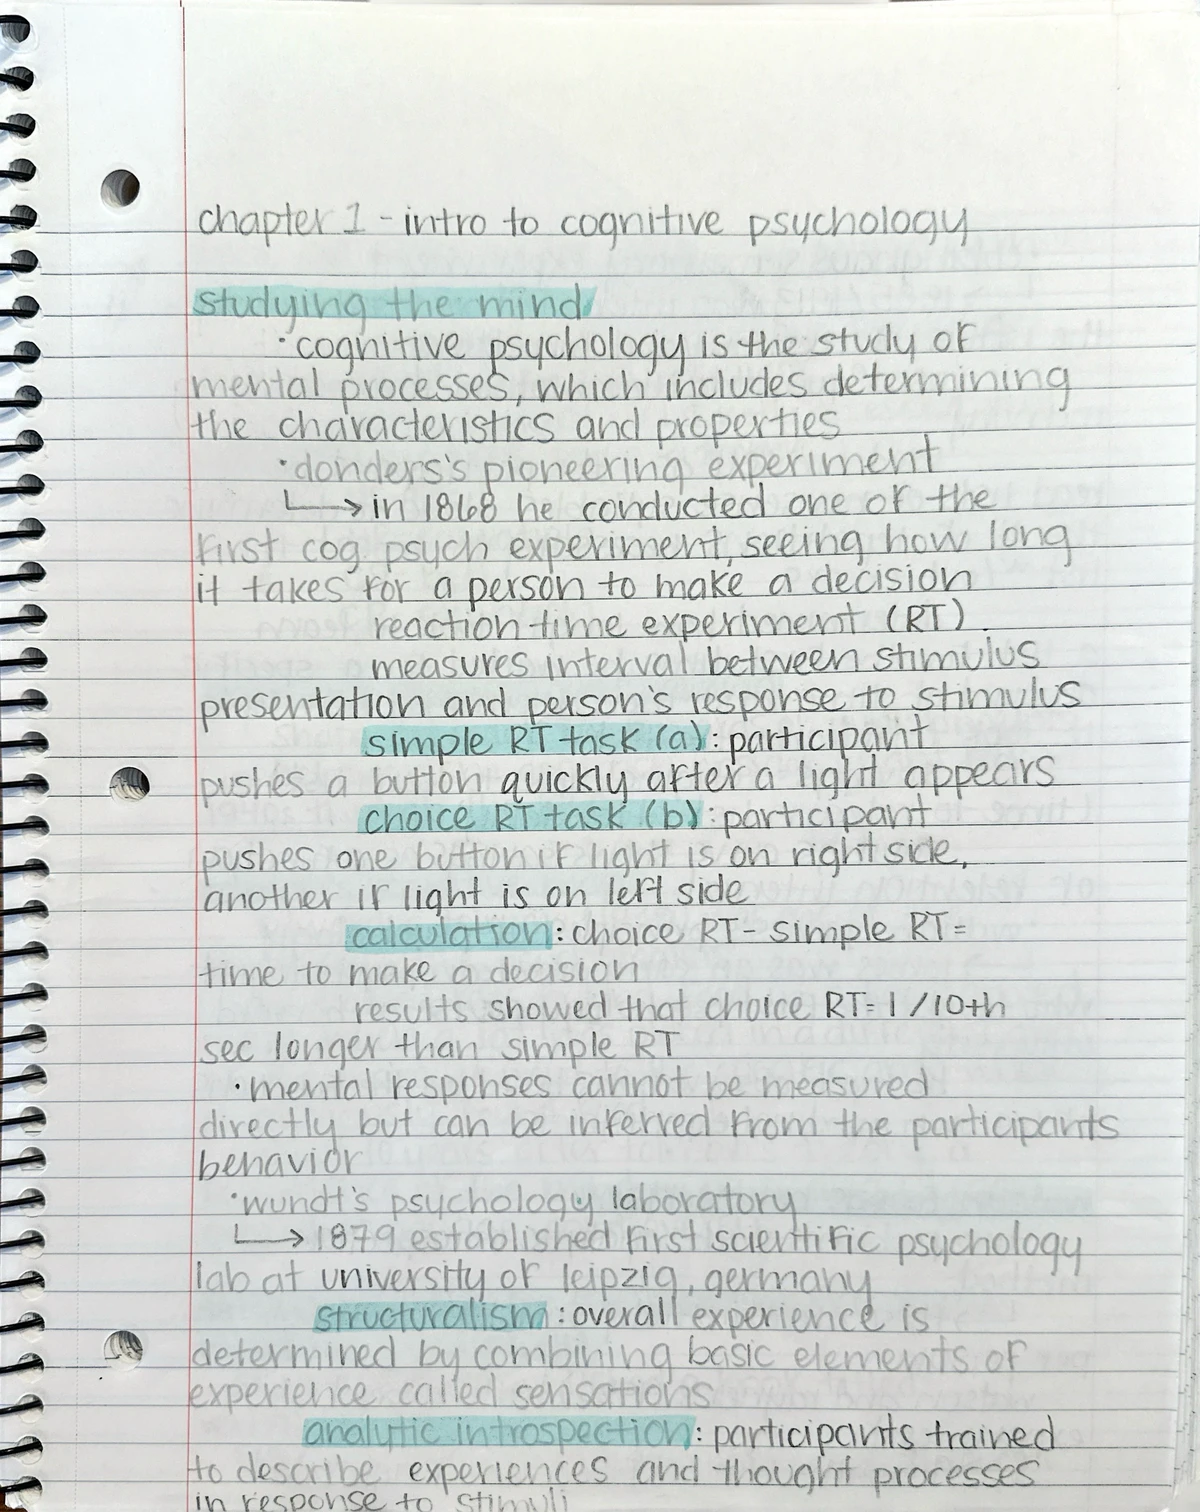 chapter 1 - intro to cognitive psychology
studying the mind
· cognitive psychology is the study of
mental processes, which includes determining
the characteristics and properties
· donders's pioneering experiment
↳ in 1868 he conducted one of the
first cog. psych experiment, seeing how long
it takes for a person to make a decision
reaction-time experiment (RT)
measures interval between stimulus
presentation and person's response to stimulus
simple RT task (a): participant
pushes a button quickly after a light appears
choice RT task (b): participant
pushes one button if light is on right side,
another if light is on left side
calculation: choice RT - simple RT =
time to make a decision
results showed that choice RT = 1/10th
sec longer than simple RT
· mental responses cannot be measured
directly but can be inferred from the participants
behavior
· wundt's psychology laboratory
↳ 1879 established first scientific psychology
lab at university of leipzig, germany
structuralism: overall experience is
determined by combining basic elements of
experience called sensations
analytic introspection: participants trained
to describe experiences and thought processes
in response to stimuli